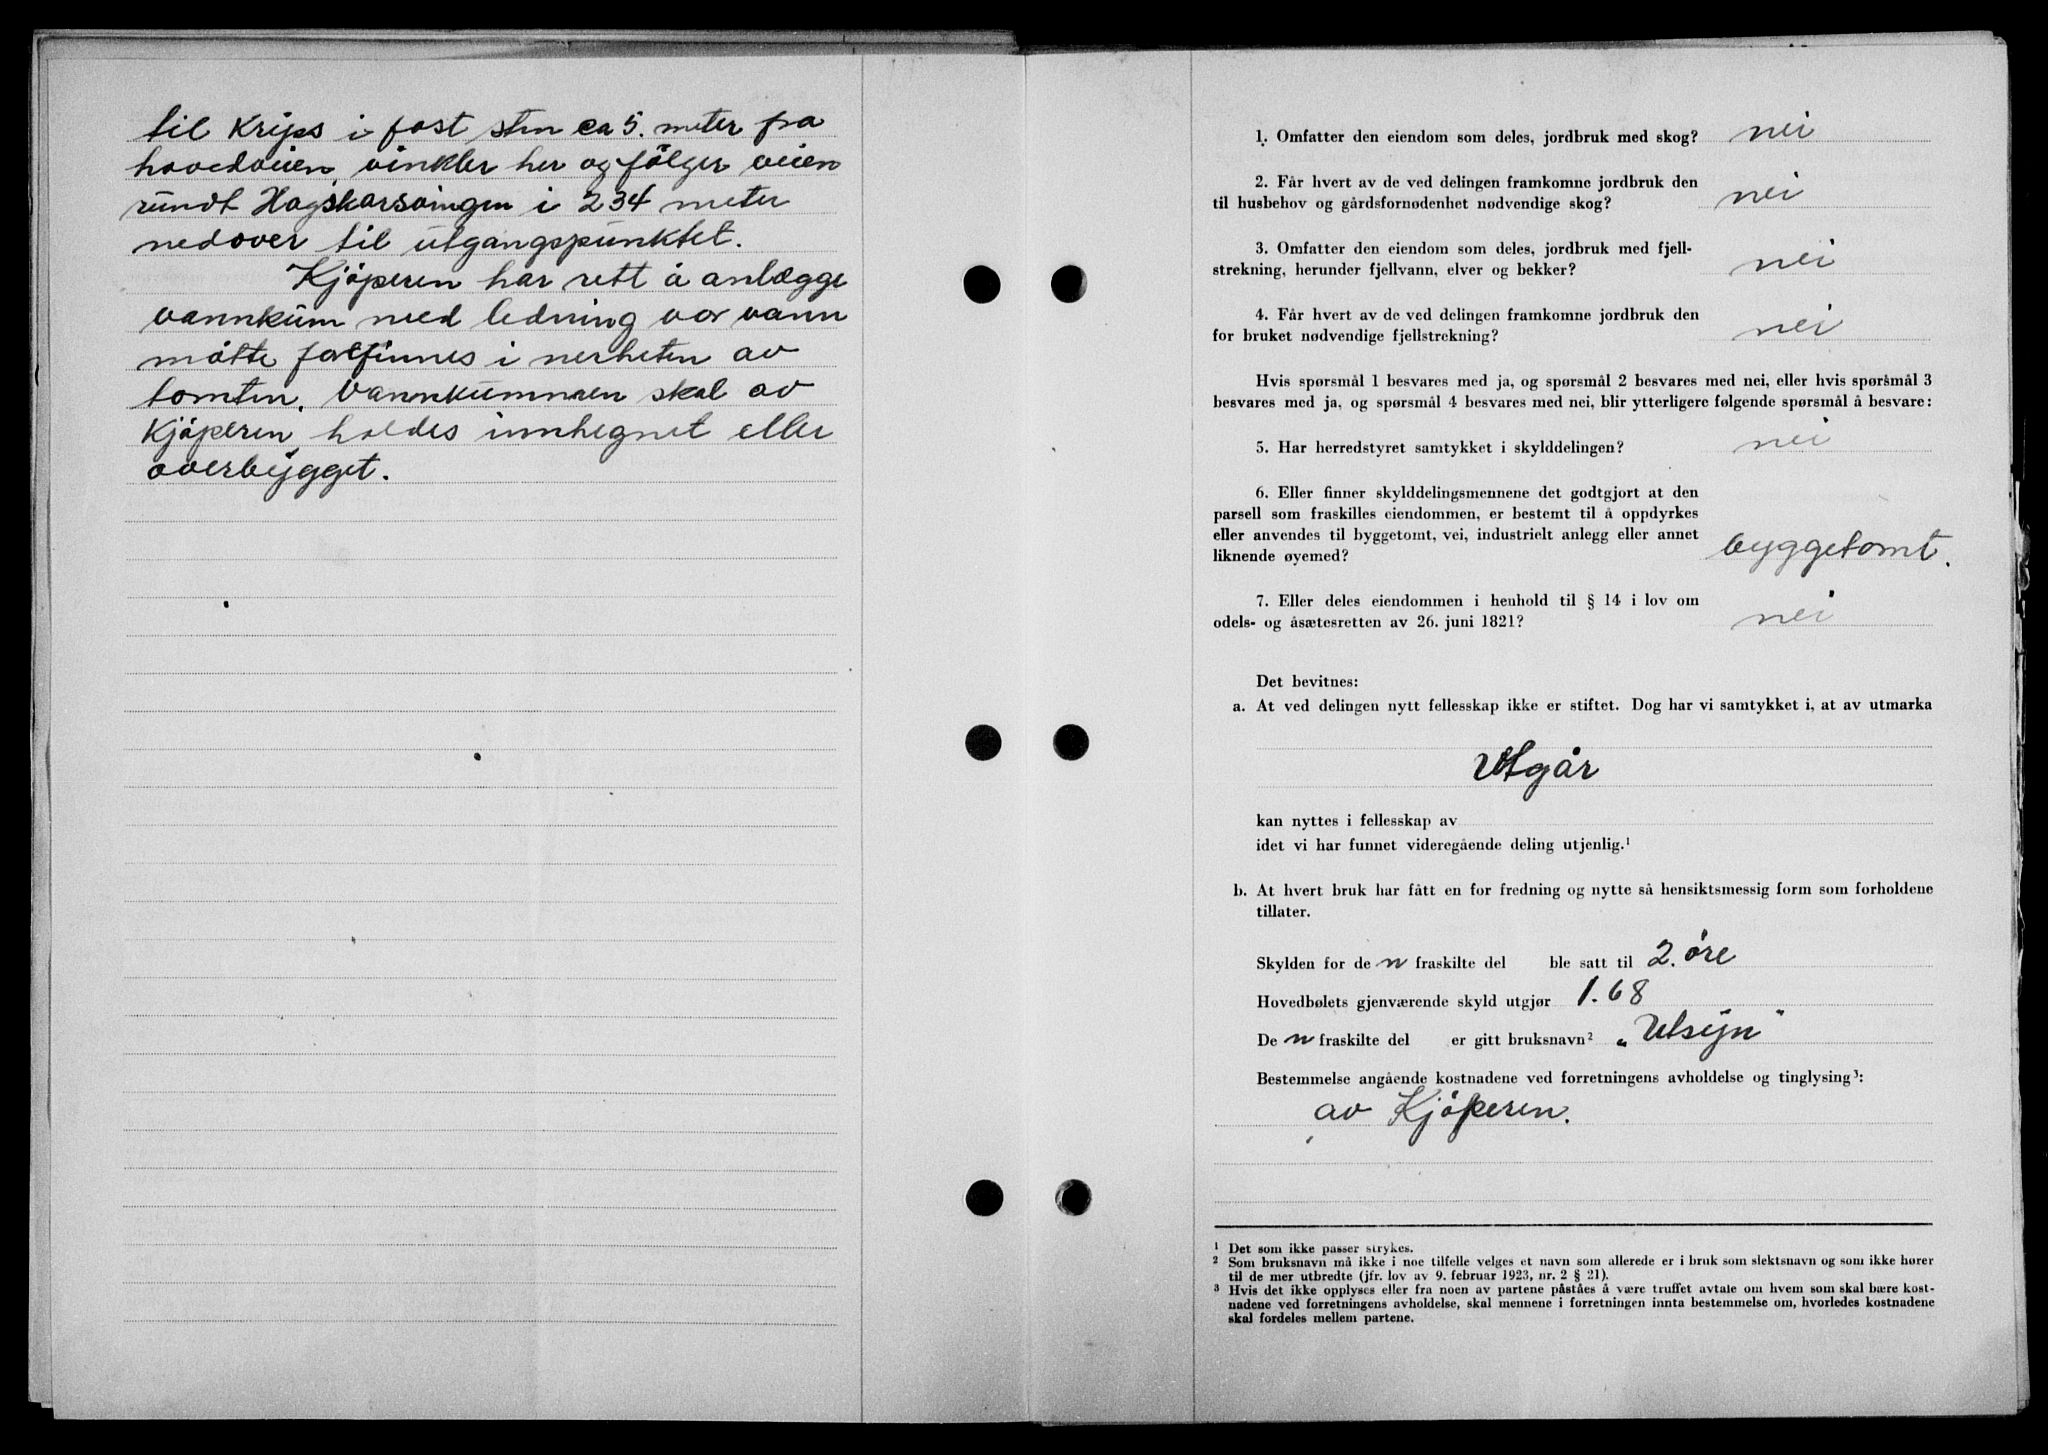 til Kryss i fast sten ca 5. meter fra
hovedveien, vinkler her og følger veien
rundt Hagskarsvingen i 234 meter
nedover til utgangspunktet.
Kjøperen har rett å anlægge
vannkum med ledning vor vann
måtte forefinnes i nerheten av
tomten. Vannkummen skal av
Kjøperen holdes innhegnet eller
overbygget.
1. Omfatter den eiendom som deles, jordbruk med skog? nei
2. Får hvert av de ved delingen framkomne jordbruk den
til husbehov og gårdsfornødenhet nødvendige skog? nei
3. Omfatter den eiendom som deles, jordbruk med fjell-
strekning, herunder fjellvann, elver og bekker? nei
4. Får hvert av de ved delingen framkomne jordbruk den
for bruket nødvendige fjellstrekning? nei
Hvis spørsmål 1 besvares med ja, og spørsmål 2 besvares med nei, eller hvis spørsmål 3
besvares med ja, og spørsmål 4 besvares med nei, blir ytterligere følgende spørsmål å besvare:
5. Har herredstyret samtykket i skylddelingen? nei
6. Eller finner skylddelingsmennene det godtgjort at den
parsell som fraskilles eiendommen, er bestemt til å oppdyrkes
eller anvendes til byggetomt, vei, industrielt anlegg eller annet
liknende øyemed? byggetomt.
7. Eller deles eiendommen i henhold til § 14 i lov om
odels- og åsætesretten av 26. juni 1821? nei
Det bevitnes:
a. At ved delingen nytt fellesskap ikke er stiftet. Dog har vi samtykket i, at av utmarka
Utgår
kan nyttes i fellesskap av
idet vi har funnet videregående deling utjenlig.¹
b. At hvert bruk har fått en for fredning og nytte så hensiktsmessig form som forholdene
tillater.
Skylden for de n fraskilte del ble satt til 2. øre
Hovedbølets gjenværende skyld utgjør 1.68
De n fraskilte del er gitt bruksnavn² „Utsyn"
Bestemmelse angående kostnadene ved forretningens avholdelse og tinglysing³:
av Kjøperen.
¹ Det som ikke passer strykes.
² Som bruksnavn må ikke i noe tilfelle velges et navn som allerede er i bruk som slektsnavn og som ikke hører
til de mer utbredte (jfr. lov av 9. februar 1923, nr. 2 § 21).
³ Hvis det ikke opplyses eller fra noen av partene påståes å være truffet avtale om hvem som skal bære kost-
nadene ved forretningens avholdelse, skal mennene i forretningen innta bestemmelse om, hvorledes kostnadene
skal fordeles mellem partene.